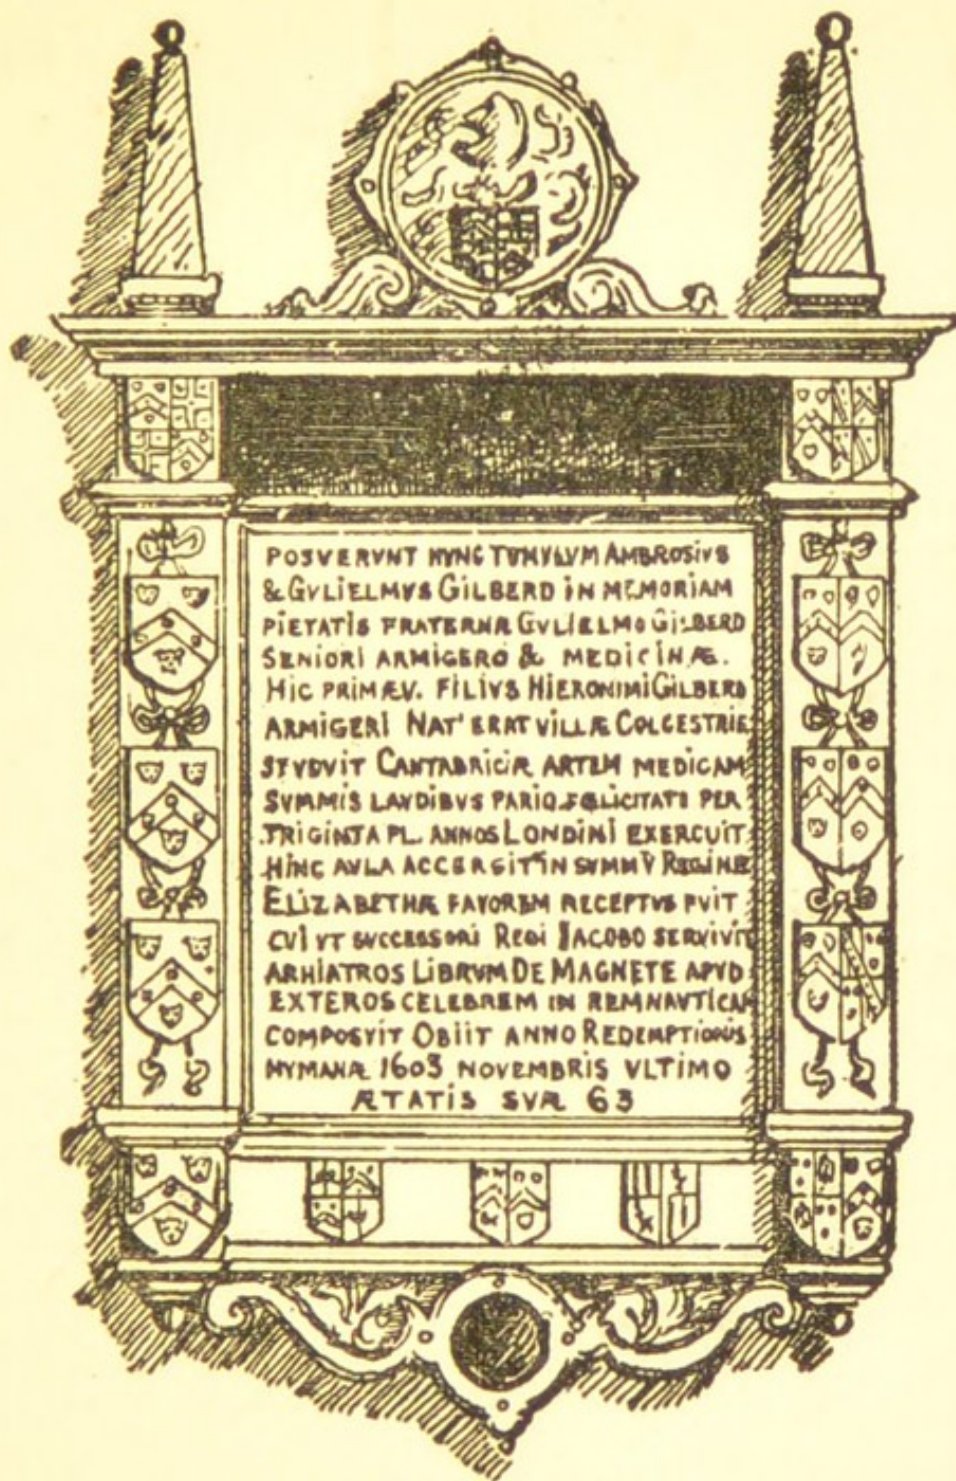 POSVERVNT HVNC TVMVLVM AMBROSIVS
& GVLIELMVS GILBERD IN MEMORIAM
PIETATIS FRATERNÆ GVLIELMO GILBERD
SENIORI ARMIGERO & MEDICINÆ.
HIC PRIMÆV. FILIVS HIERONIMI GILBERD
ARMIGERI NAT' ERAT VILLÆ COLCESTRIE
STVDVIT CANTABRICIÆ ARTEM MEDICAM
SVMMIS LAVDIBVS PARIQ FOLICITATI PER
TRIGINTA PL. ANNOS LONDINI EXERCUIT
HINC AVLA ACCERSIT IN SVMMV̄ REGINÆ
ELIZABETHÆ FAVOREM RECEPTVS FVIT
CVI VT SVCCESSORI REGI JACOBO SERVIVIT
ARHIATROS LIBRVM DE MAGNETE APVD
EXTEROS CELEBREM IN REM NAVTICAM
COMPOSVIT OBIIT ANNO REDEMPTIONIS
HVMANÆ 1603 NOVEMBRIS VLTIMO
ÆTATIS SVÆ 63